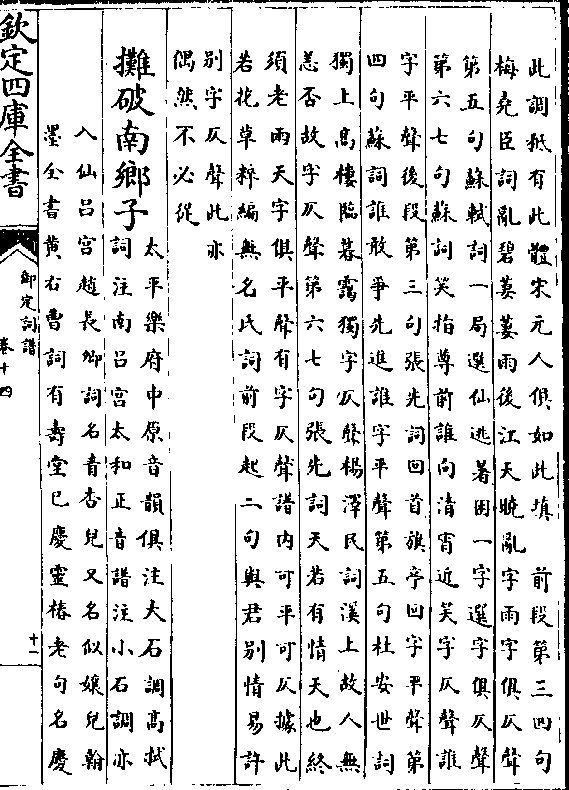 此調秪有此體宋元人俱如此填 前段第三四句
梅堯臣詞亂碧萋萋雨後江天曉亂字雨字俱仄聲
第五句蘇軾詞一局選仙逃著困一字選字俱仄聲
第六七句蘇詞笑指尊前誰向清宵近笑字仄聲誰
字平聲後段第三句張先詞回首旗亭回字平聲第
四句蘇詞誰敢爭先進誰字平聲第五句杜安世詞
獨上髙樓臨暮靄獨字仄聲楊澤民詞溪上故人無
恙否故字仄聲第六七句張先詞天若有情天也終
須老兩天字俱平聲有字仄聲譜内可平可仄據此
若花草粹編無名氏詞前段起二句與君别情易許
别字仄聲此亦
偶然不必從
攤破南鄉子
太平樂府中原音韻俱注大石調髙拭
詞注南吕宮太和正音譜注小石調亦
入仙吕宮趙長卿詞名青杏兒又名似娘兒翰
墨全書黄右曹詞有壽堂已慶靈椿老句名慶
欽定四庫全書
御定詞譜
卷十四
十一